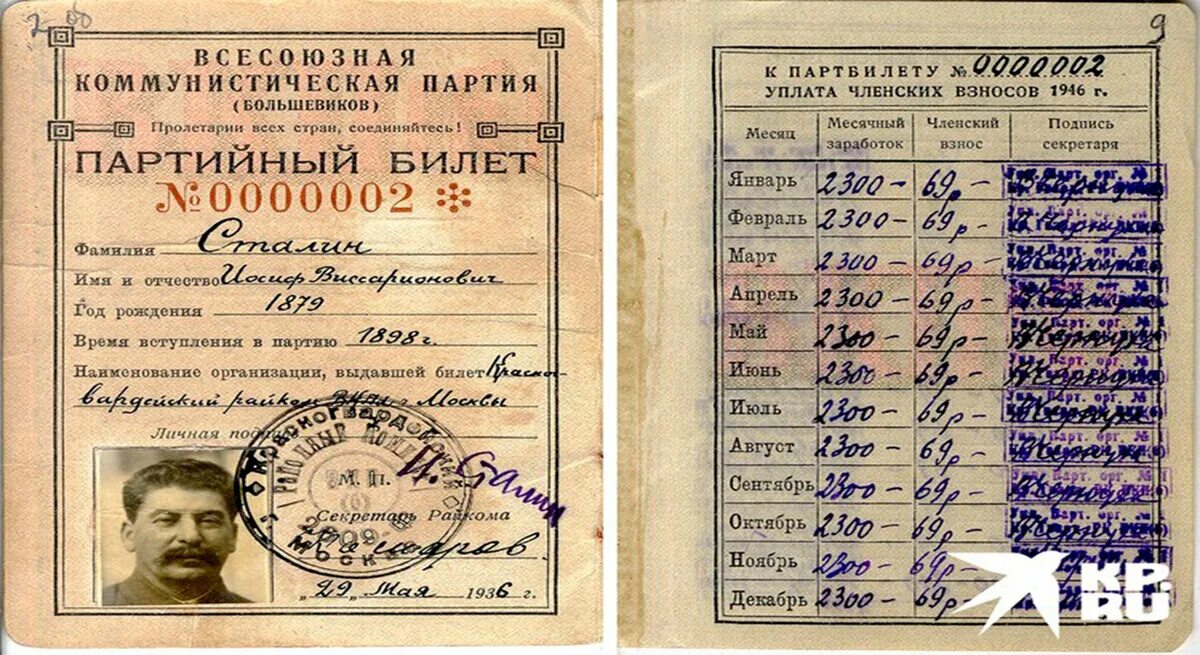 2-00
ВСЕСОЮЗНАЯ
КОММУНИСТИЧЕСКАЯ ПАРТИЯ
(БОЛЬШЕВИКОВ)
Пролетарии всех стран, соединяйтесь!
ПАРТИЙНЫЙ БИЛЕТ
№ 0000002
Фамилия Сталин
Имя и отчество Иосиф Виссарионович
Год рождения 1879
Время вступления в партию 1898 г.
Наименование организации, выдавшей билет Красно-
вардейский райком г. Москвы
Личная
И. Сталин
Красногвардейский
М. П.
Секретарь Райкома
Москва
„29" Мая 1936 г.
9
К ПАРТБИЛЕТУ № 0000002
УПЛАТА ЧЛЕНСКИХ ВЗНОСОВ 1946 г.
Месяц Месячный заработок Членский взнос Подпись секретаря
Январь 2300 – 69р –
Февраль 2300 – 69р –
Март 2300 – 69р –
Апрель 2300 – 69р –
Май 2300 – 69р –
Июнь 2300 – 69р –
Июль 2300 – 69р –
Август 2300 – 69р –
Сентябрь 2300 – 69р –
Октябрь 2300 – 69р –
Ноябрь 2300 – 69р –
Декабрь 2300 – 69р –
KP.
RU